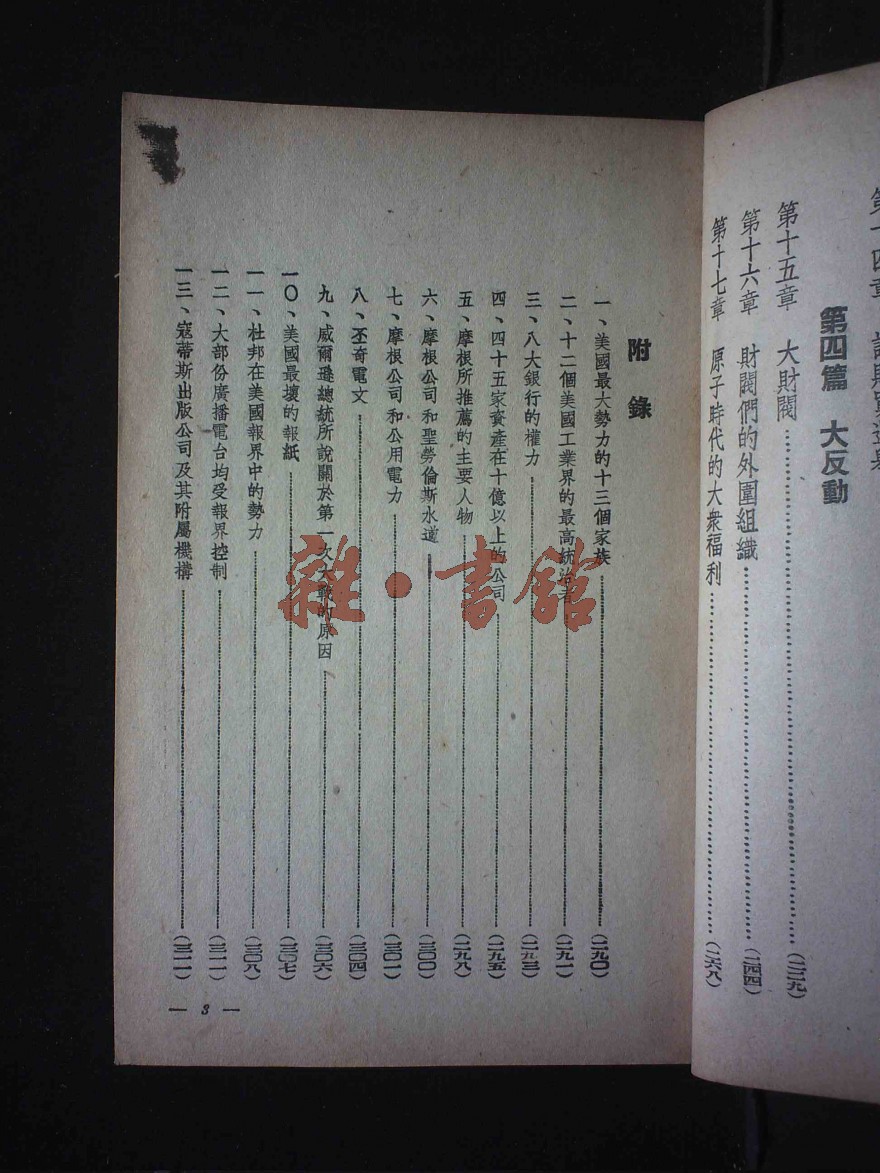 第四篇 大反動
第十五章 大財閥……(二二九)
第十六章 財閥們的外圍組織……(二四四)
第十七章 原子時代的大衆福利……(二六八)
附錄
一、美國最大勢力的十三個家族……(二九〇)
二、十二個美國工業界的最高統治者……(二九一)
三、八大銀行的權力……(二九三)
四、四十五家資產在十億以上的公司……(二九五)
五、摩根所推薦的主要人物……(二九八)
六、摩根公司和聖勞倫斯水道……(三〇〇)
七、摩根公司和公用電力……(三〇一)
八、丕奇電文……(三〇四)
九、威爾遜總統所說關於第一次大戰的原因……(三〇六)
一〇、美國最壞的報紙……(三〇七)
一一、杜邦在美國報界中的勢力……(三〇八)
一二、大部份廣播電台均受報界控制……(三一一)
一三、寇蒂斯出版公司及其附屬機構……(三一一)
— 3 —
雜·書館